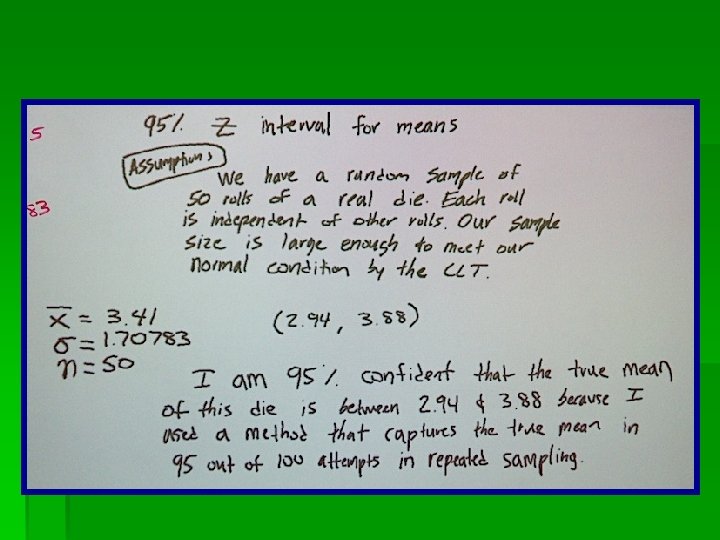 95% Z interval for means
5
Assumptions
We have a random sample of
50 rolls of a real die. Each roll
83
is independent of other rolls. Our sample
size is large enough to meet our
normal condition by the CLT.
x̄ = 3.41
(2.94, 3.88)
σ = 1.70783
n = 50
I am 95% confident that the true mean
of this die is between 2.94 & 3.88 because I
used a method that captures the true mean in
95 out of 100 attempts in repeated sampling.